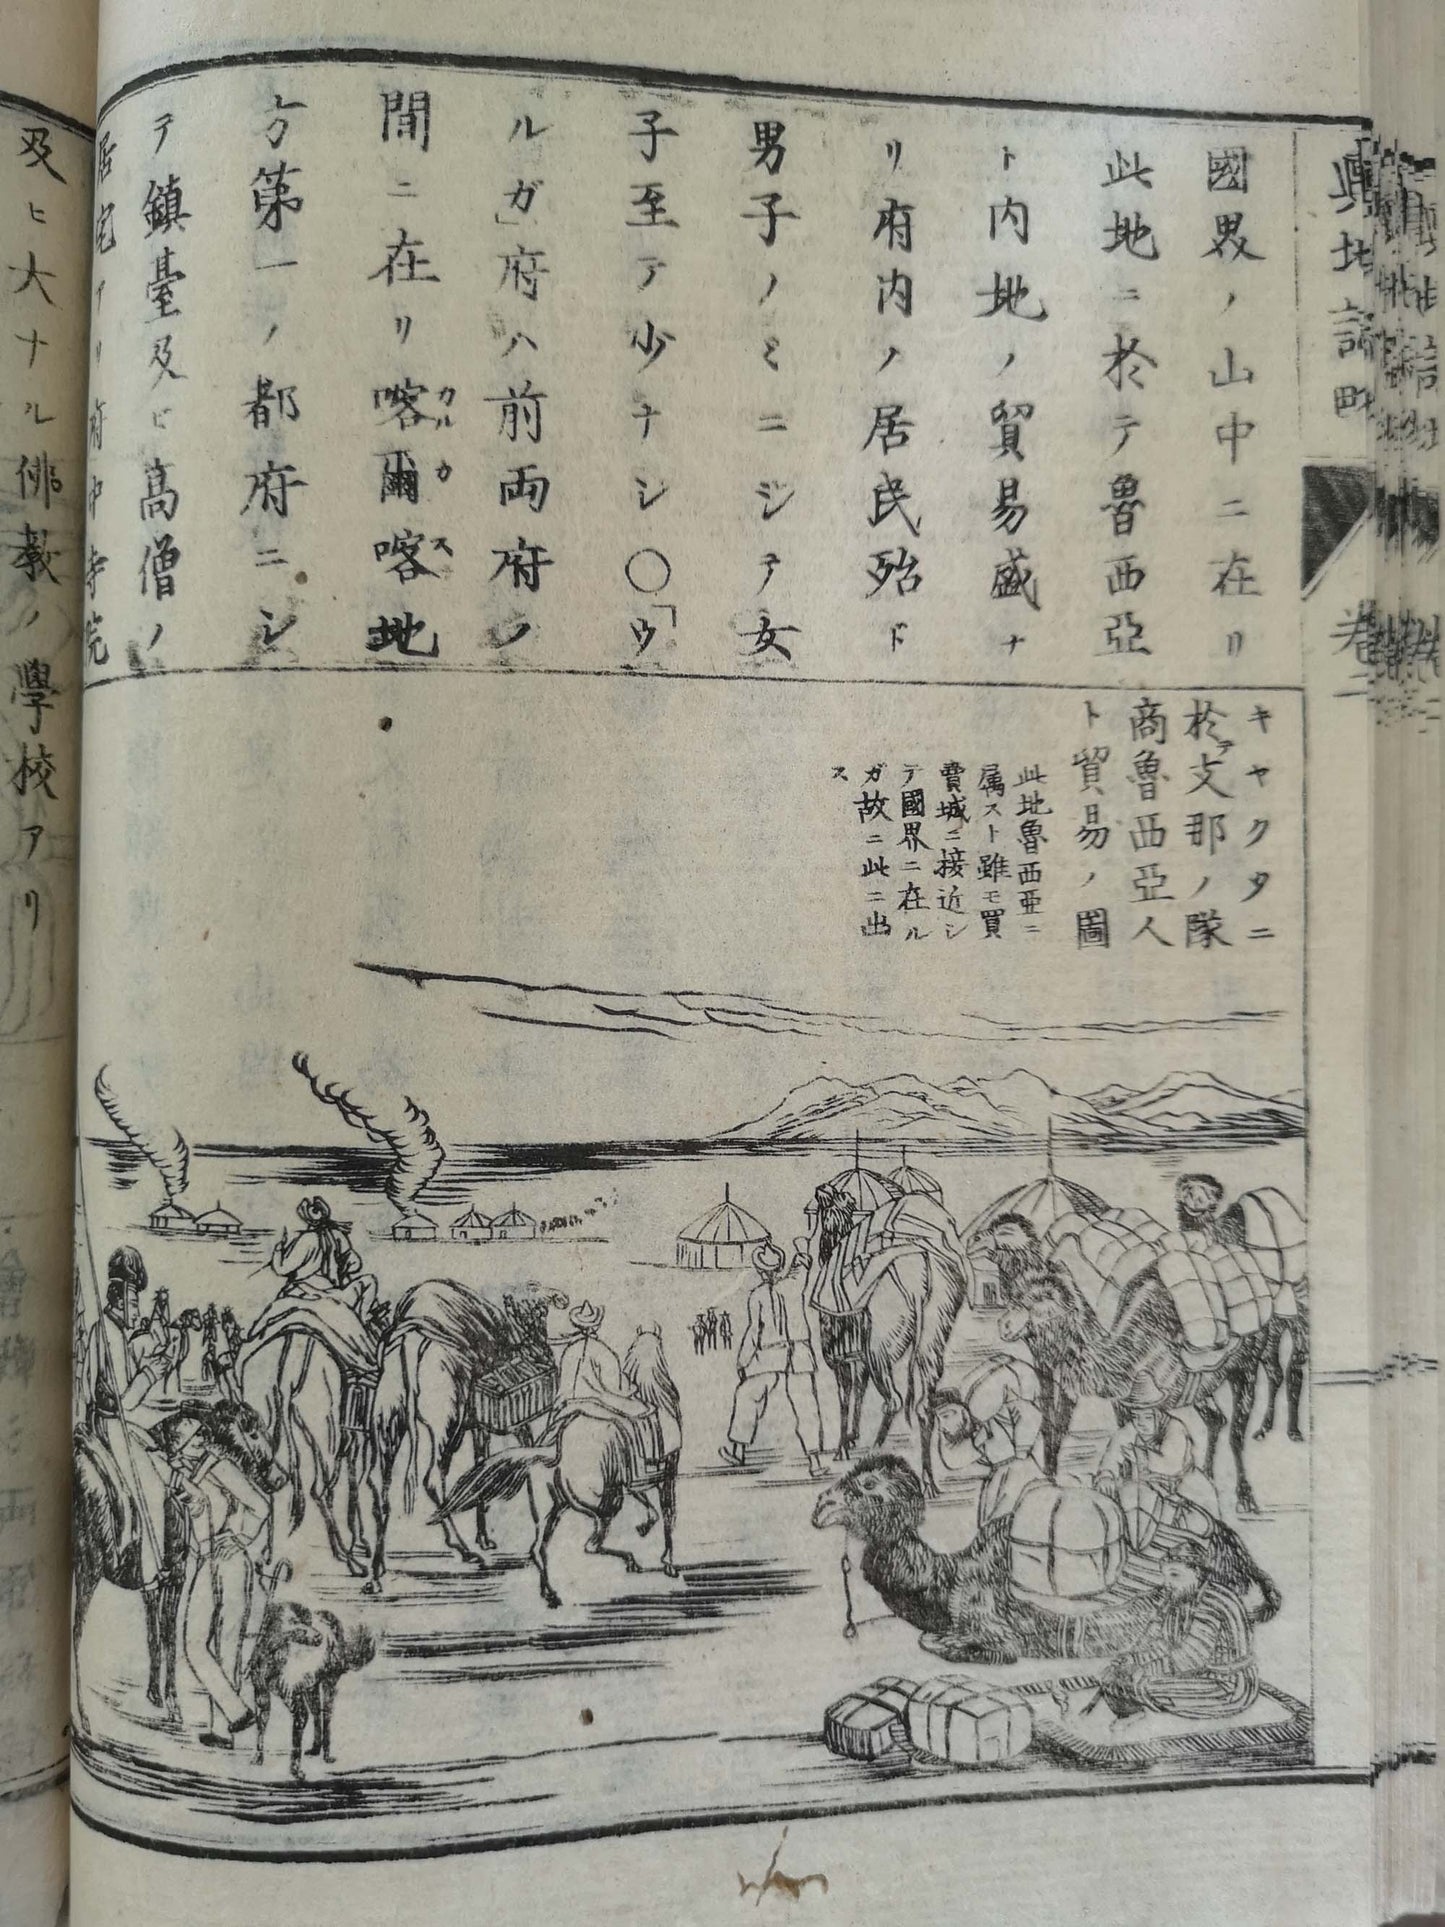 輿地誌略
卷二
國界ノ山中ニ在リ
此地ニ於テ魯西亞
ト内地ノ貿易盛ナ
リ府内ノ居民殆ド
男子ノミニシテ女
子至テ少ナシ○「ウ
ルガ」府ハ前両府ノ
間ニ在リ喀爾喀地
カルカス
方第一ノ都府ニシ
テ鎮臺及ヒ高僧ノ
居宅アリ府中寺院
キヤクタニ
於テ支那ノ隊
商魯西亞人
ト貿易ノ圖
此地魯西亜ニ
属スト雖モ買
賣城ニ接近シ
テ國界ニ在ル
ガ故ニ此ニ出
ス
及ヒ大ナル佛教ノ學校アリ